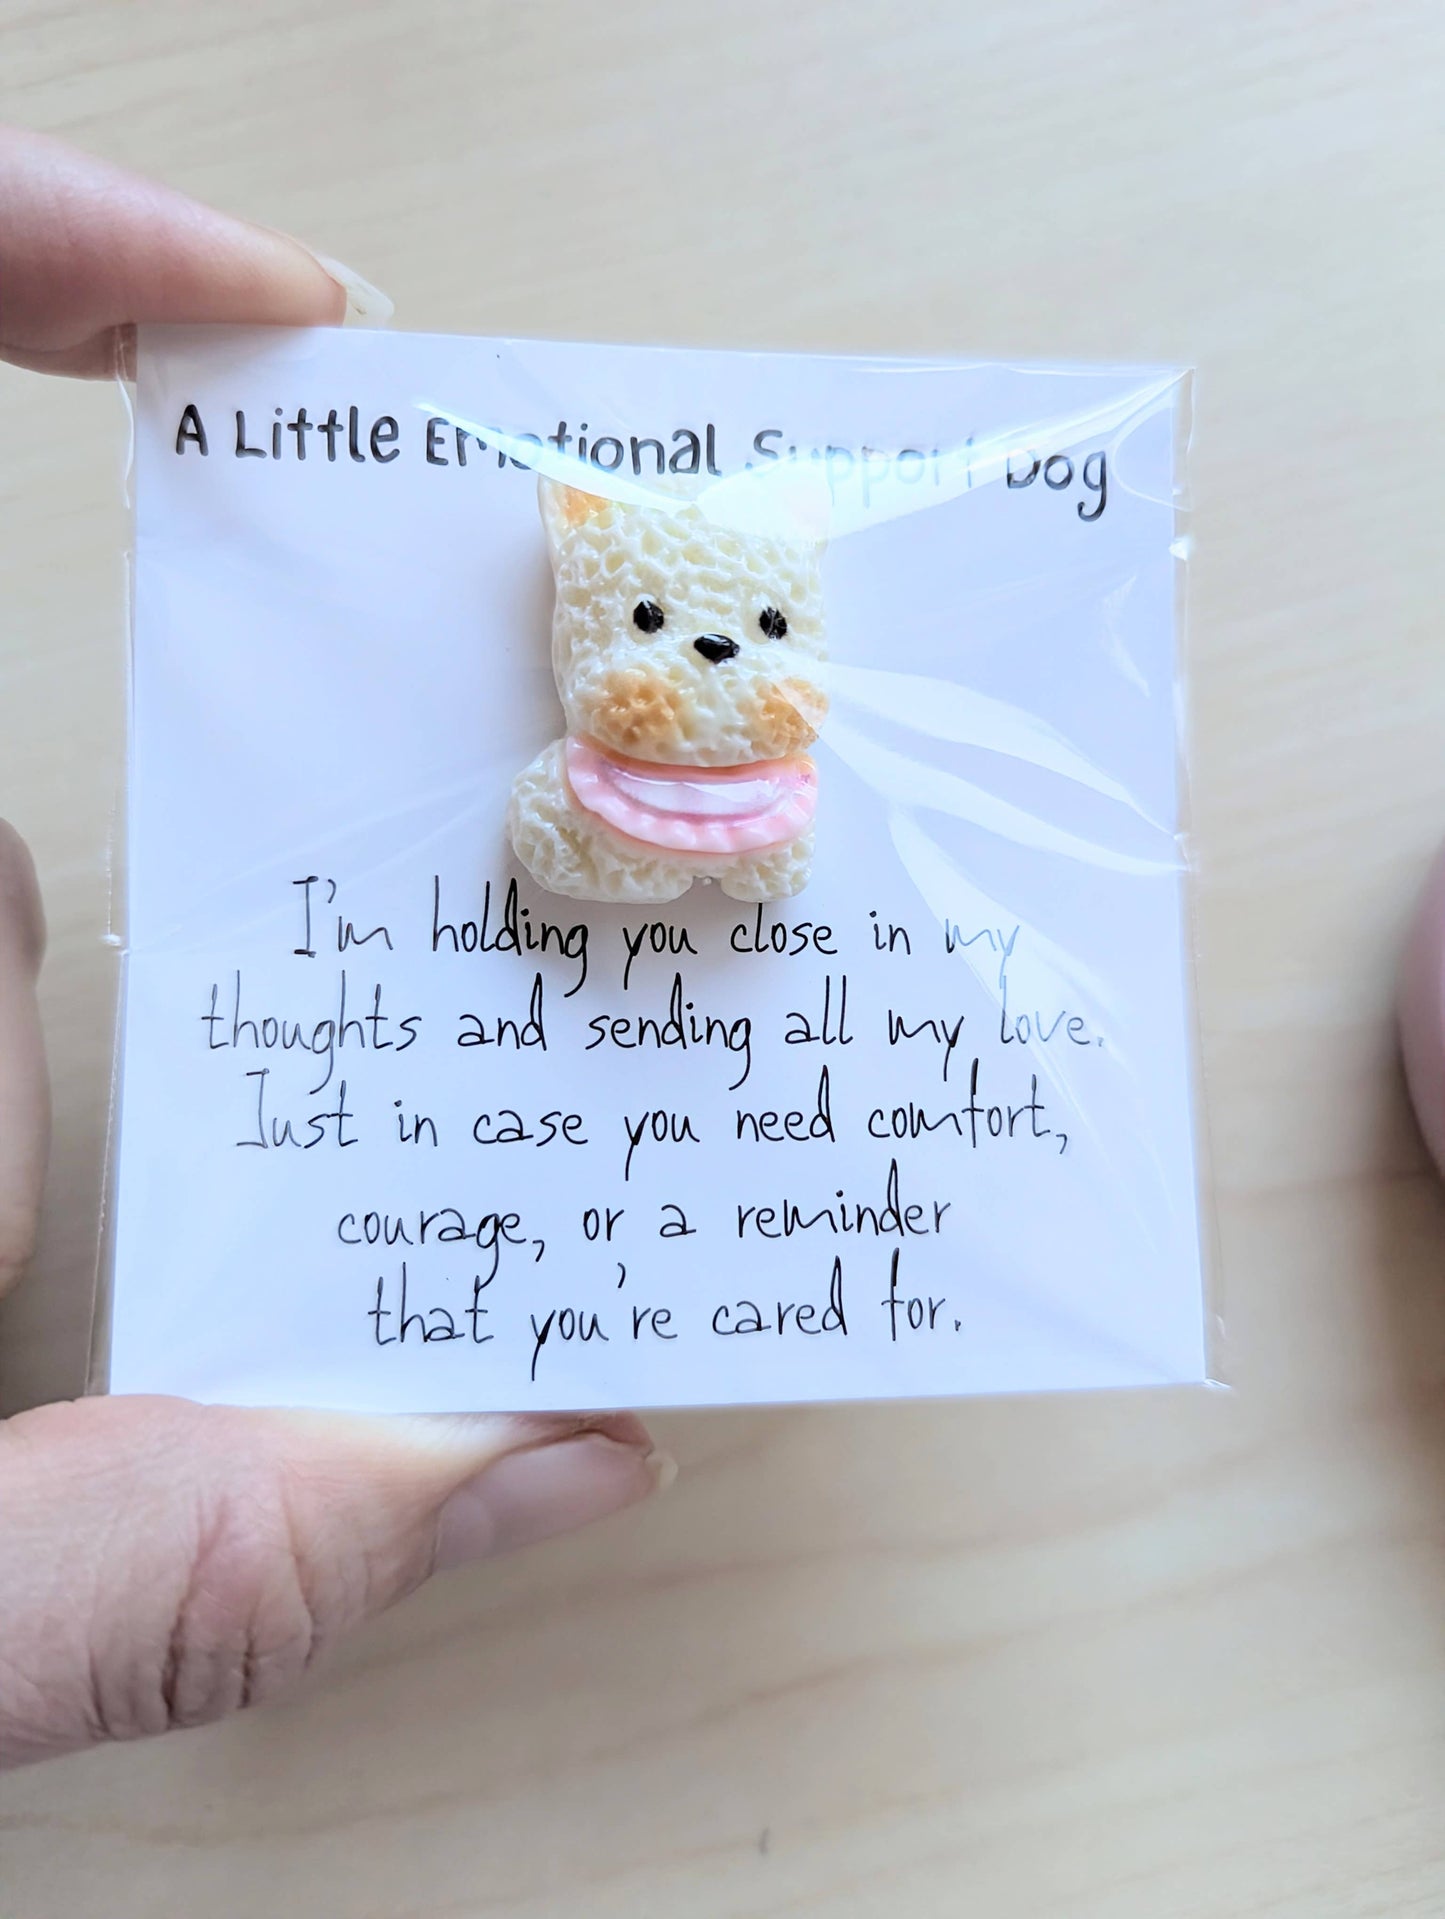 A Little Emotional Support Dog
I'm holding you close in my
thoughts and sending all my love.
Just in case you need comfort,
courage, or a reminder
that you're cared for.